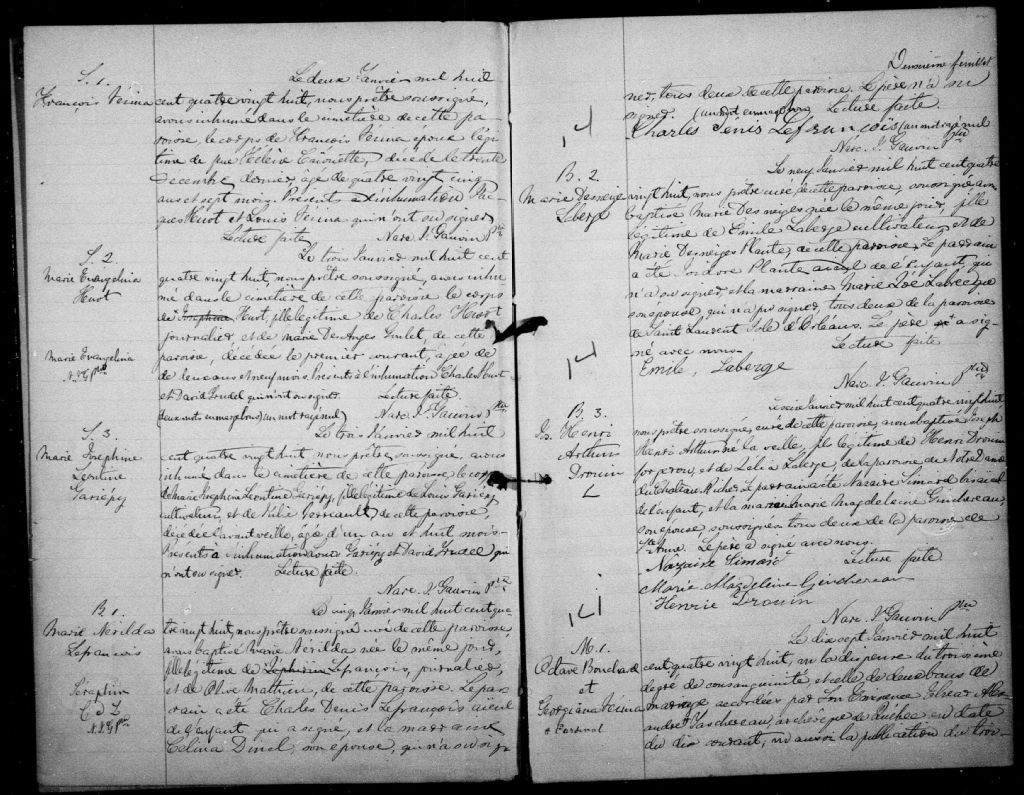 S. 1.
François Vézina
Le deux Janvier mil huit
cent quatre vingt huit, nous prêtre soussigné,
avons inhumé dans le cimetière de cette pa-
roisse le corps de François Vézina époux légi-
time de feue Célève décédé le trente
Décembre dernier, âgé de quatre vingt cinq
ans et sept mois. Présents à l'inhumation Jac-
ques Huot et Louis Vézina qui n'ont su signer
Lecture faite Narc. J. Gauvin Ptre
S. 2
Marie Evangelina
Huot
Le trois Janvier mil huit cent
quatre vingt huit, nous prêtre soussigné, avons inhu-
mé dans le cimetière de cette paroisse le corps
de Josephine Huot, fille légitime de Charles Huot
journalier et de Marie Des Anges Gulet, de cette
Marie Evangelina
N.J.G Ptre
paroisse, décédée le premier courant, âgée de
de deux ans et neuf mois. Présents à l'inhumation Charles Huot
et David Trudel qui n'ont su signer. Lecture faite.
(deux mots en marge bons) (un mot rayé nul) Narc. J. Gauvin Ptre
S. 3
Marie Josephine
Leontine
Gariepy
Le trois Janvier mil huit
cent quatre vingt huit, nous prêtre soussigné, avons
inhumé dans le cimetière de cette paroisse le corps
de Marie Josephine Leontine Gariepy, fille légitime de Louis Gariepy
cultivateur, et de Verreault, de cette paroisse,
décédée l'avant veille, âgée d'un an et huit mois.
Présents à l'inhumation Gariepy et David Trudel qui
n'ont su signer. Lecture faite.
Narc. J. Gauvin Ptre
B. 1.
Marie Nérilda
Lefrancois
Le cinq Janvier mil huit cent qua-
tre vingt huit, nous prêtre soussigné curé de cette paroisse,
avons baptisé Marie Nérilda née le même jour,
fille légitime de Zephirin Lefrancois, journalier,
Séraphin
N.J.G Ptre
et de Olive Mathieu, de cette paroisse. Le par-
rain a été Charles Denis Lefrançois aieul
de l'enfant qui a signé, et la marraine
Celina Dinel, son épouse, qui n'a su sig-
Deuxième feuillet
ner, tous deux de cette paroisse. Le père n'a su
signer. (un mot en marge bon) Lecture faite.
Charles Denis Lefrançois (un mot rayé nul
Narc. J. Gauvin Ptre
B. 2.
Marie Desneiges
Laberge
Le neuf Janvier mil huit cent quatre
vingt huit, nous prêtre curé de cette paroisse, soussigné avons
baptisé Marie Des neiges née le même jour, fille
légitime de Emile Laberge cultivateur, et de
Marie Desneiges Plante, de cette paroisse. Le parrain
a été Isodore Plante aieul de l'enfant, qui
n'a su signer, et la marraine Marie Zoé Labrecque
son épouse, qui n'a pu signer, tous deux de la paroisse
de Saint Laurent Isle d'Orléans. Le père a sig-
né avec nous. Lecture faite
Emile, Laberge
Narc. J. Gauvin ptre
B. 3.
Jos. Henri
Arthur
Drouin
Le seize Janvier mil huit cent quatre vingt huit
nous prêtre soussigné, curé de cette paroisse, avons baptisé Joseph
Henri Arthur né la veille, fils légitime de Henri Drouin
forgeron, et de Lélia Laberge, de la paroisse de Notre Dame
du Chateau Richer. Le parrain a été Nazaire Simard bisaieul
de l'enfant, et la marraine Marie Magdeleine Guichereau,
son épouse, soussignés tous deux de la paroisse de
Ste Anne. Le père a signé avec nous.
Nazaire Simard Lecture faite.
Marie Magdeleine Ginchereau
Henrie Drouin
Narc. J. Gauvin Ptre
M. 1.
Octave Bouchard
et
Georgiana Vézina
Le dix sept Janvier mil huit
cent quatre vingt huit, vu la dispense du troisième
degré de consanguinité et celle de deux bans de
mariage accordées par Son Eminence Elzear Alex-
andre Taschereau, archévêque de Québec en date
du dix courant, vu aussi la publication du troi-